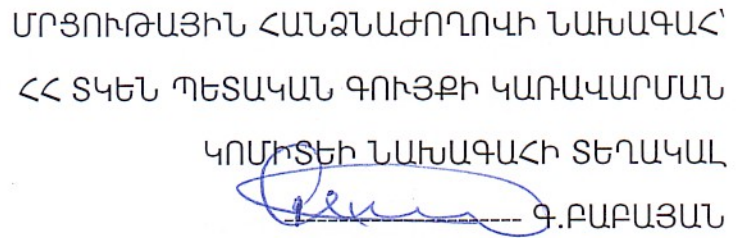 ՄՐՑՈՒԹԱՅԻՆ ՀԱՆՁՆԱԺՈՂՈՎԻ ՆԱԽԱԳԱՀ՝
ՀՀ ՏԿԵՆ ՊԵՏԱԿԱՆ ԳՈՒՅՔԻ ԿԱՌԱՎԱՐՄԱՆ
ԿՈՄԻՏԵԻ ՆԱԽԱԳԱՀԻ ՏԵՂԱԿԱԼ
---------------------- Գ.ԲԱԲԱՅԱՆ